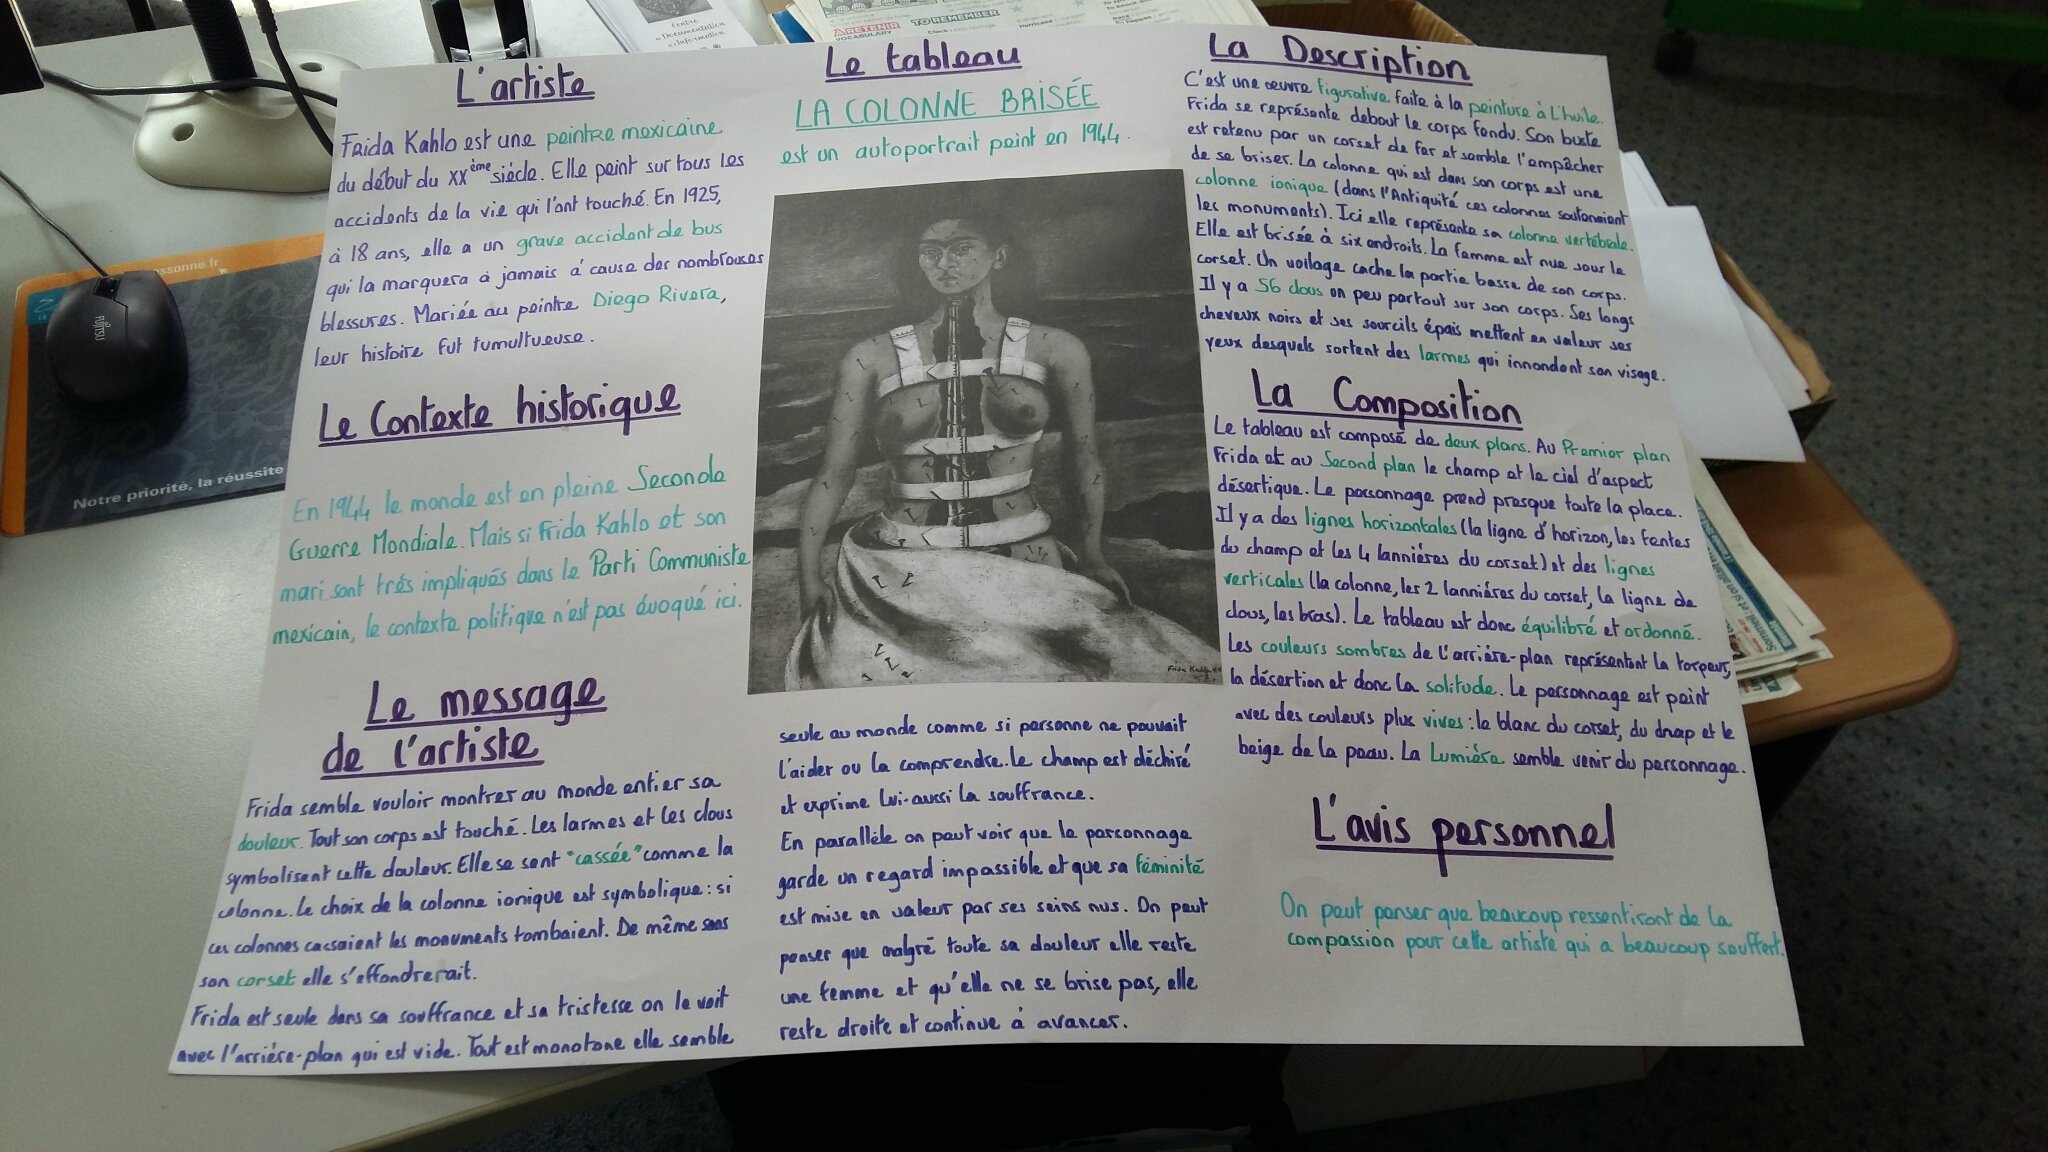 L'artiste
Frida Kahlo est une peintre mexicaine
du début du XXème siécle. Elle peint sur tous les
accidents de la vie qui l'ont touché. En 1925,
à 18 ans, elle a un grave accident de bus
qui la marquera à jamais à cause des nombreuses
blessures. Mariée au peintre Diego Rivera,
leur histoire fut tumultueuse.
Le Contexte historique
En 1944 le monde est en pleine Seconde
Guerre Mondiale. Mais si Frida Kahlo et son
mari sont trés impliqués dans le Parti Communiste
mexicain, le contexte politique n'est pas évoqué ici.
Le message
de l'artiste
Frida semble vouloir montrer au monde entier sa
douleur. Tout son corps est touché. Les larmes et les clous
symbolisent cette douleur. Elle se sent "cassée" comme la
colonne. Le choix de la colonne ionique est symbolique : si
ces colonnes cassaient les monuments tombaient. De même sans
son corset elle s'effondrerait.
Frida est seule dans sa souffrance et sa tristesse on le voit
avec l'arrière-plan qui est vide. Tout est monotone elle semble
Le tableau
LA COLONNE BRISÉE
est un autoportrait peint en 1944.
Frida Kahlo 44
seule au monde comme si personne ne pouvait
l'aider ou la comprendre. Le champ est déchiré
et exprime lui-aussi la souffrance.
En parallèle on peut voir que le personnage
garde un regard impassible et que sa féminité
est mise en valeur par ses seins nus. On peut
penser que malgré toute sa douleur elle reste
une femme et qu'elle ne se brise pas, elle
reste droite et continue à avancer.
La Description
C'est une œuvre figurative faite à la peinture à l'huile.
Frida se représente debout le corps fendu. Son buste
est retenu par un corset de fer et semble l'empêcher
de se briser. La colonne qui est dans son corps est une
colonne ionique (dans l'Antiquité ces colonnes soutenaient
les monuments). Ici elle représente sa colonne vertébrale.
Elle est brisée à six endroits. La femme est nue sous le
corset. Un voilage cache la partie basse de son corps.
Il y a 56 clous un peu partout sur son corps. Ses longs
cheveux noirs et ses sourcils épais mettent en valeur ses
yeux desquels sortent des larmes qui innondent son visage.
La Composition
Le tableau est composé de deux plans. Au Premier plan
Frida et au Second plan le champ et le ciel d'aspect
désertique. Le personnage prend presque toute la place.
Il y a des lignes horizontales (la ligne d'horizon, les fentes
du champ et les 4 lannières du corset) et des lignes
verticales (la colonne, les 2 lannières du corset, la ligne de
clous, les bras). Le tableau est donc équilibré et ordonné.
Les couleurs sombres de l'arrière-plan représentent la torpeur,
la désertion et donc la solitude. Le personnage est peint
avec des couleurs plus vives : le blanc du corset, du drap et le
beige de la peau. La Lumière semble venir du personnage.
L'avis personnel
On peut penser que beaucoup ressentiront de la
compassion pour cette artiste qui a beaucoup souffert.
Centre
Documentation
Information
À RETENIR
VOCABULARY
TO REMEMBER
Hurricane
FUJITSU
essonne.fr
Notre priorité, la réussite